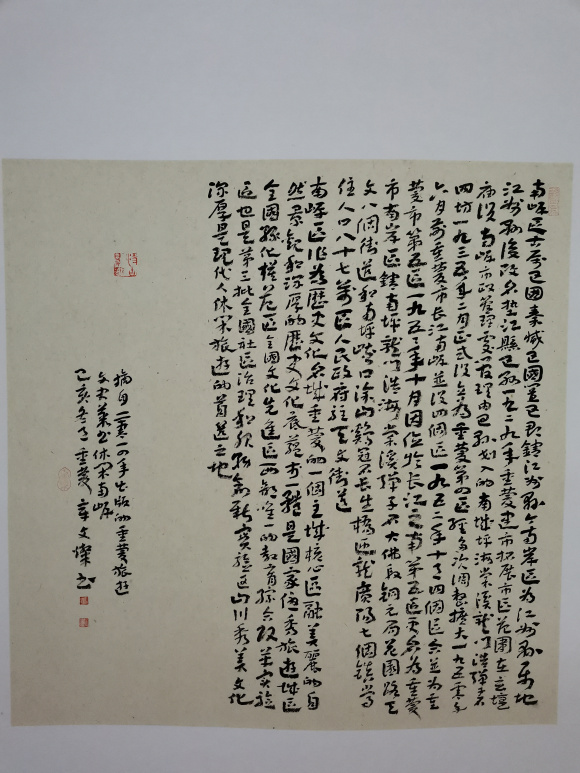 南岸区古属巴国秦灭巴国置巴郡辖江州县今南岸区为江州县属地
江州县后改名垫江县巴县一九二九年重庆建市拓展市区范围在立坛
庙设南岸市政管理处管理由巴县划入的南城坪海棠溪龙门浩弹子石
四坊一九三五年二月正式设立为重庆第四区经多次调整扩大一九五零年
六月前重庆市长江南岸并设四个区一九五二年十二月四个区合并为重
庆市第五区一九五五年十月因位于长江之南第五区更名为重庆
市南岸区辖南坪龙门浩海棠溪弹子石大佛段铜元局花园路天
文八个街道和南坪峡口涂山鸡冠石长生桥迎龙广阳七个镇常
住人口八十七万区人民政府驻天文街道
南岸区作为历史文化名城重庆的一个主城核心区融美丽的自
然景观和深厚的历史文化底蕴于一体是国家优秀旅游城区
全国绿化模范区全国文化先进区西部唯一的教育综合改革实验
区也是第三批全国社区治理和服务创新实验区山川秀美文化
深厚是现代人休闲旅游的首选之地
摘自二零一四年出版的重庆旅游
文史丛书休闲南岸
己亥冬月重庆章文灿书